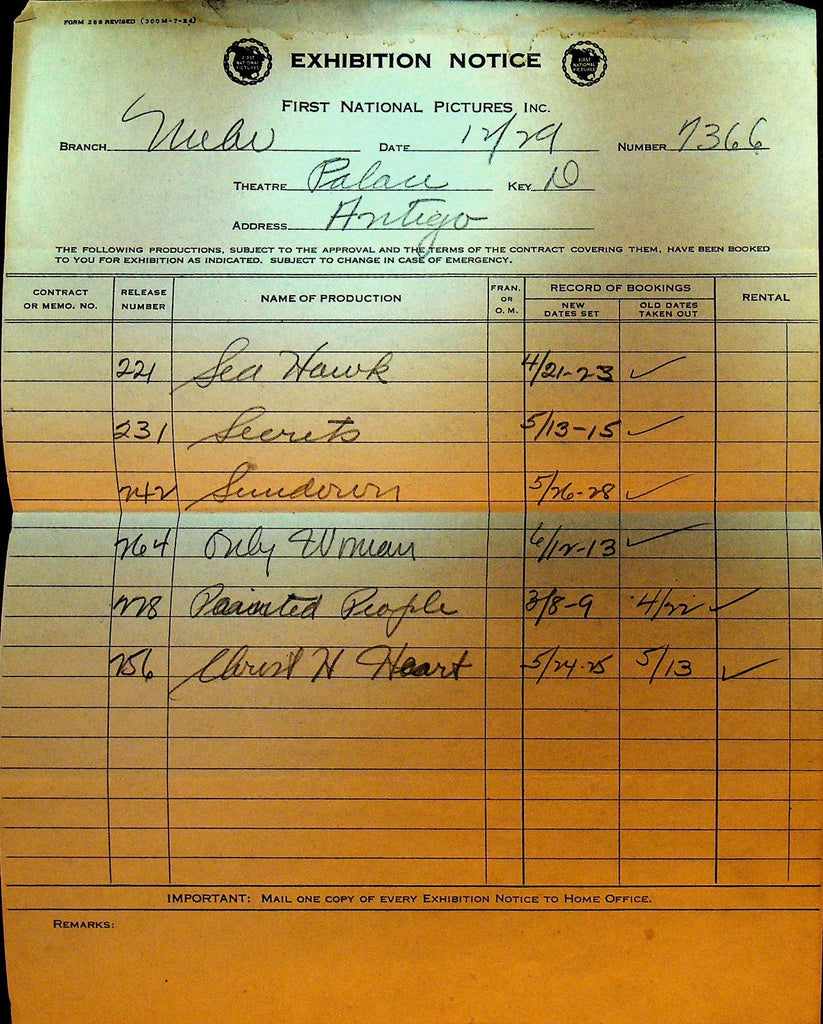 FORM 268 REVISED (300M-7-24)
FIRST NATIONAL PICTURES EXHIBITION NOTICE FIRST NATIONAL PICTURES
FIRST NATIONAL PICTURES INC.
BRANCH DATE 12/29 NUMBER 7366
THEATRE Palace KEY 10
ADDRESS Antigo
THE FOLLOWING PRODUCTIONS, SUBJECT TO THE APPROVAL AND THE TERMS OF THE CONTRACT COVERING THEM, HAVE BEEN BOOKED
TO YOU FOR EXHIBITION AS INDICATED. SUBJECT TO CHANGE IN CASE OF EMERGENCY.
CONTRACT OR MEMO. NO. RELEASE NUMBER NAME OF PRODUCTION FRAN. OR O. M. RECORD OF BOOKINGS NEW DATES SET OLD DATES TAKEN OUT RENTAL
221 Sea Hawk 4/21-23 ✓
231 Secrets 5/13-15 ✓
242 Sundown 5/26-28 ✓
264 Only Woman 6/12-13 ✓
228 Painted People 3/8-9 4/22 ✓
256 Christ H Heart 5/24-25 5/13 ✓
IMPORTANT: MAIL ONE COPY OF EVERY EXHIBITION NOTICE TO HOME OFFICE.
REMARKS: